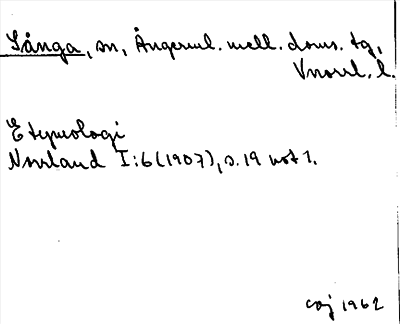 Sånga, sn, Ångerml. mell. doms. tg,
Vnorrl. l.
Etymologi
Norrland I:6 (1907), s. 19 not 1.
1962